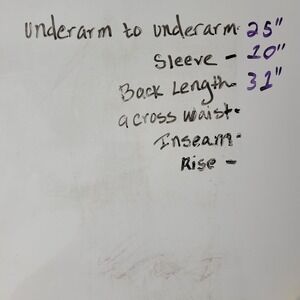 Underarm to underarm- 25"
Sleeve - 10"
Back Length- 31"
across waist-
Inseam-
Rise -